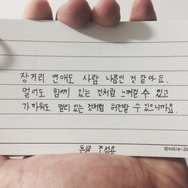 장거리 연애도 사람 나름인 것 같아요.
멀어도 함께 있는 것처럼 느껴질 수 있고
가까워도 멀리 있는 것처럼 외면할 수 있으니까요.